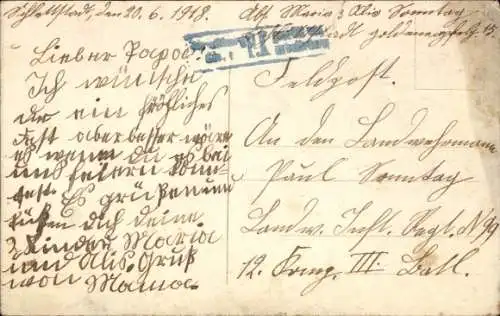 Schlettstadt, den 20.6.1918. Abs. Maria u. Alis Sonntag
goldeneng. 15
Lieber Papa!
Ich wünsche
dir ein fröhliches
Fest aber besser wäre
es wenn du es bei
uns feiern könn-
test. Es grüßen und
küßen dich deine
2 Kinder Maria
und Alis. Gruß
von Mama.
Feldpost.
An den Landwehrmann
Paul Sonntag
Landw. Inft. Regt. N 99
12. Komp. III. Batl.